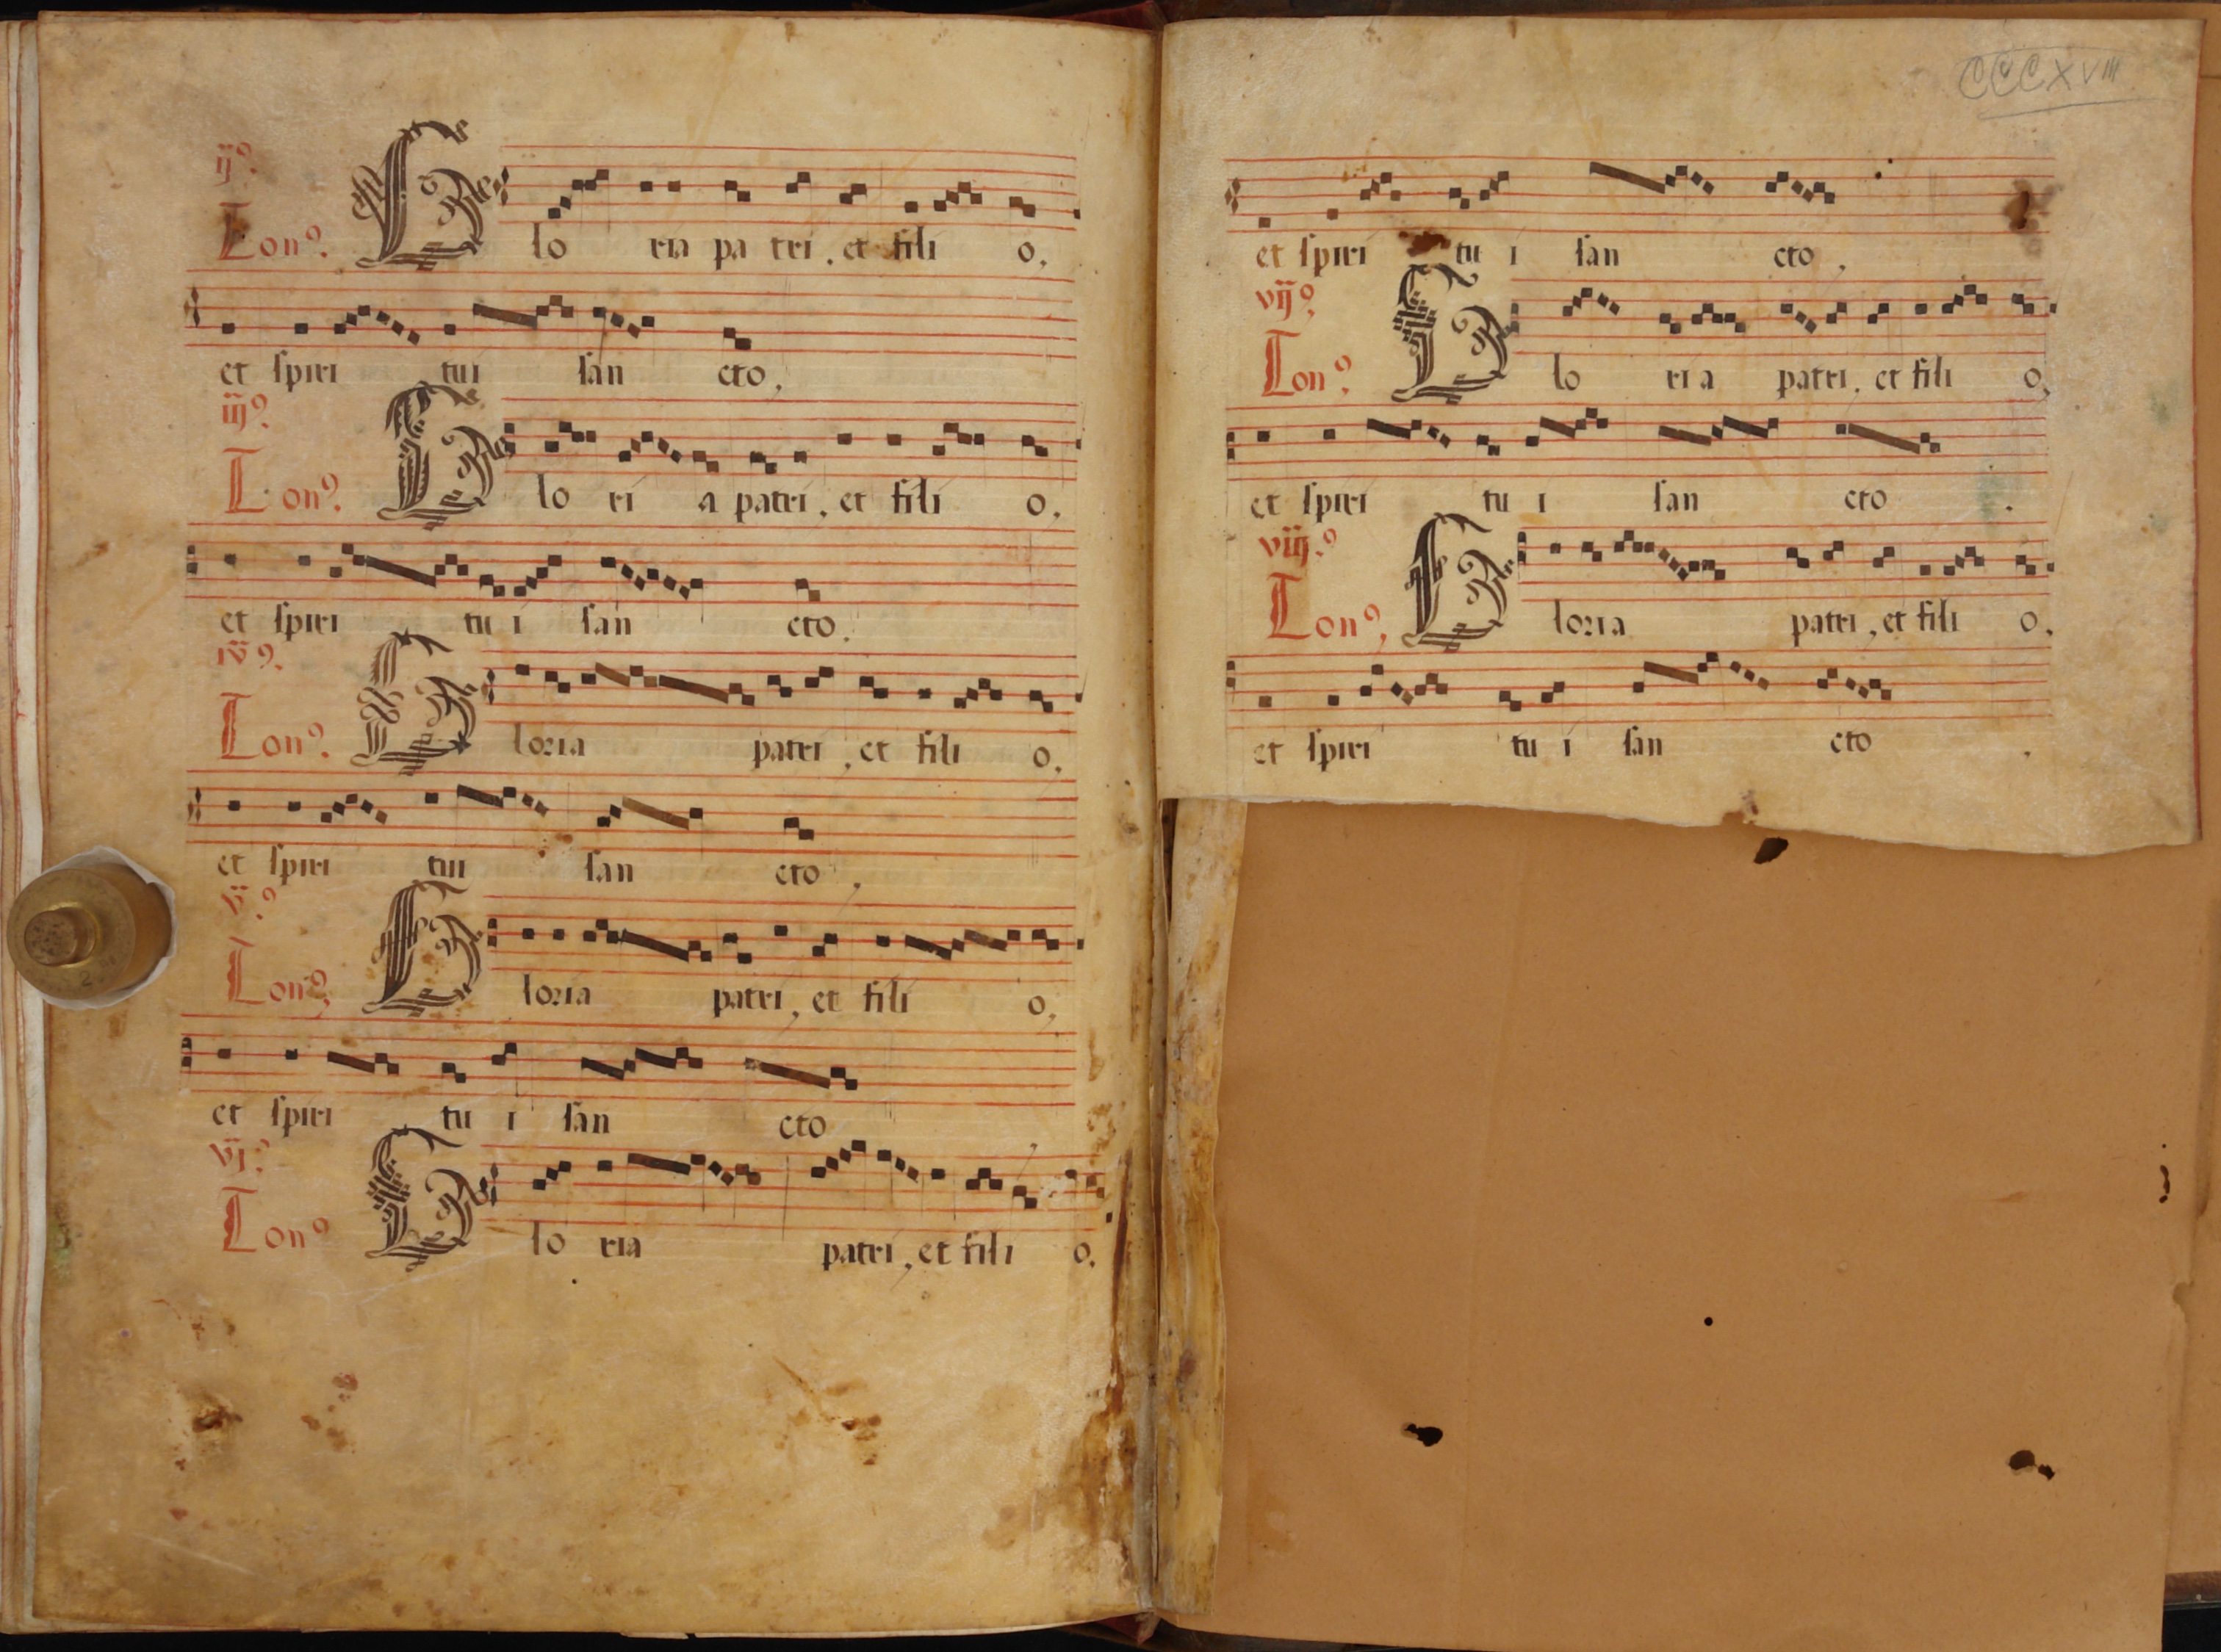 ij9.
Ton9. Glo ria pa tri, et fili o,
et spiri tui san cto,
iij9.
Ton9. Glo ri a patri, et fili o,
et spiri tu i san cto.
iv9.
Ton9. Gloria patri, et fili o,
et spiri tui san cto,
v.9
Ton9, Gloria patri, et fili o,
et spiri tu i san cto
vj.9
Ton9 Glo ria patri, et fili o,
CCCXVIII
et spiri tu i san cto,
vij9,
Ton9. Glo ri a patri, et fili o,
et spiri tu i san cto .
viij.9
Ton9, Gloria patri, et fili o,
et spiri tu i san cto .